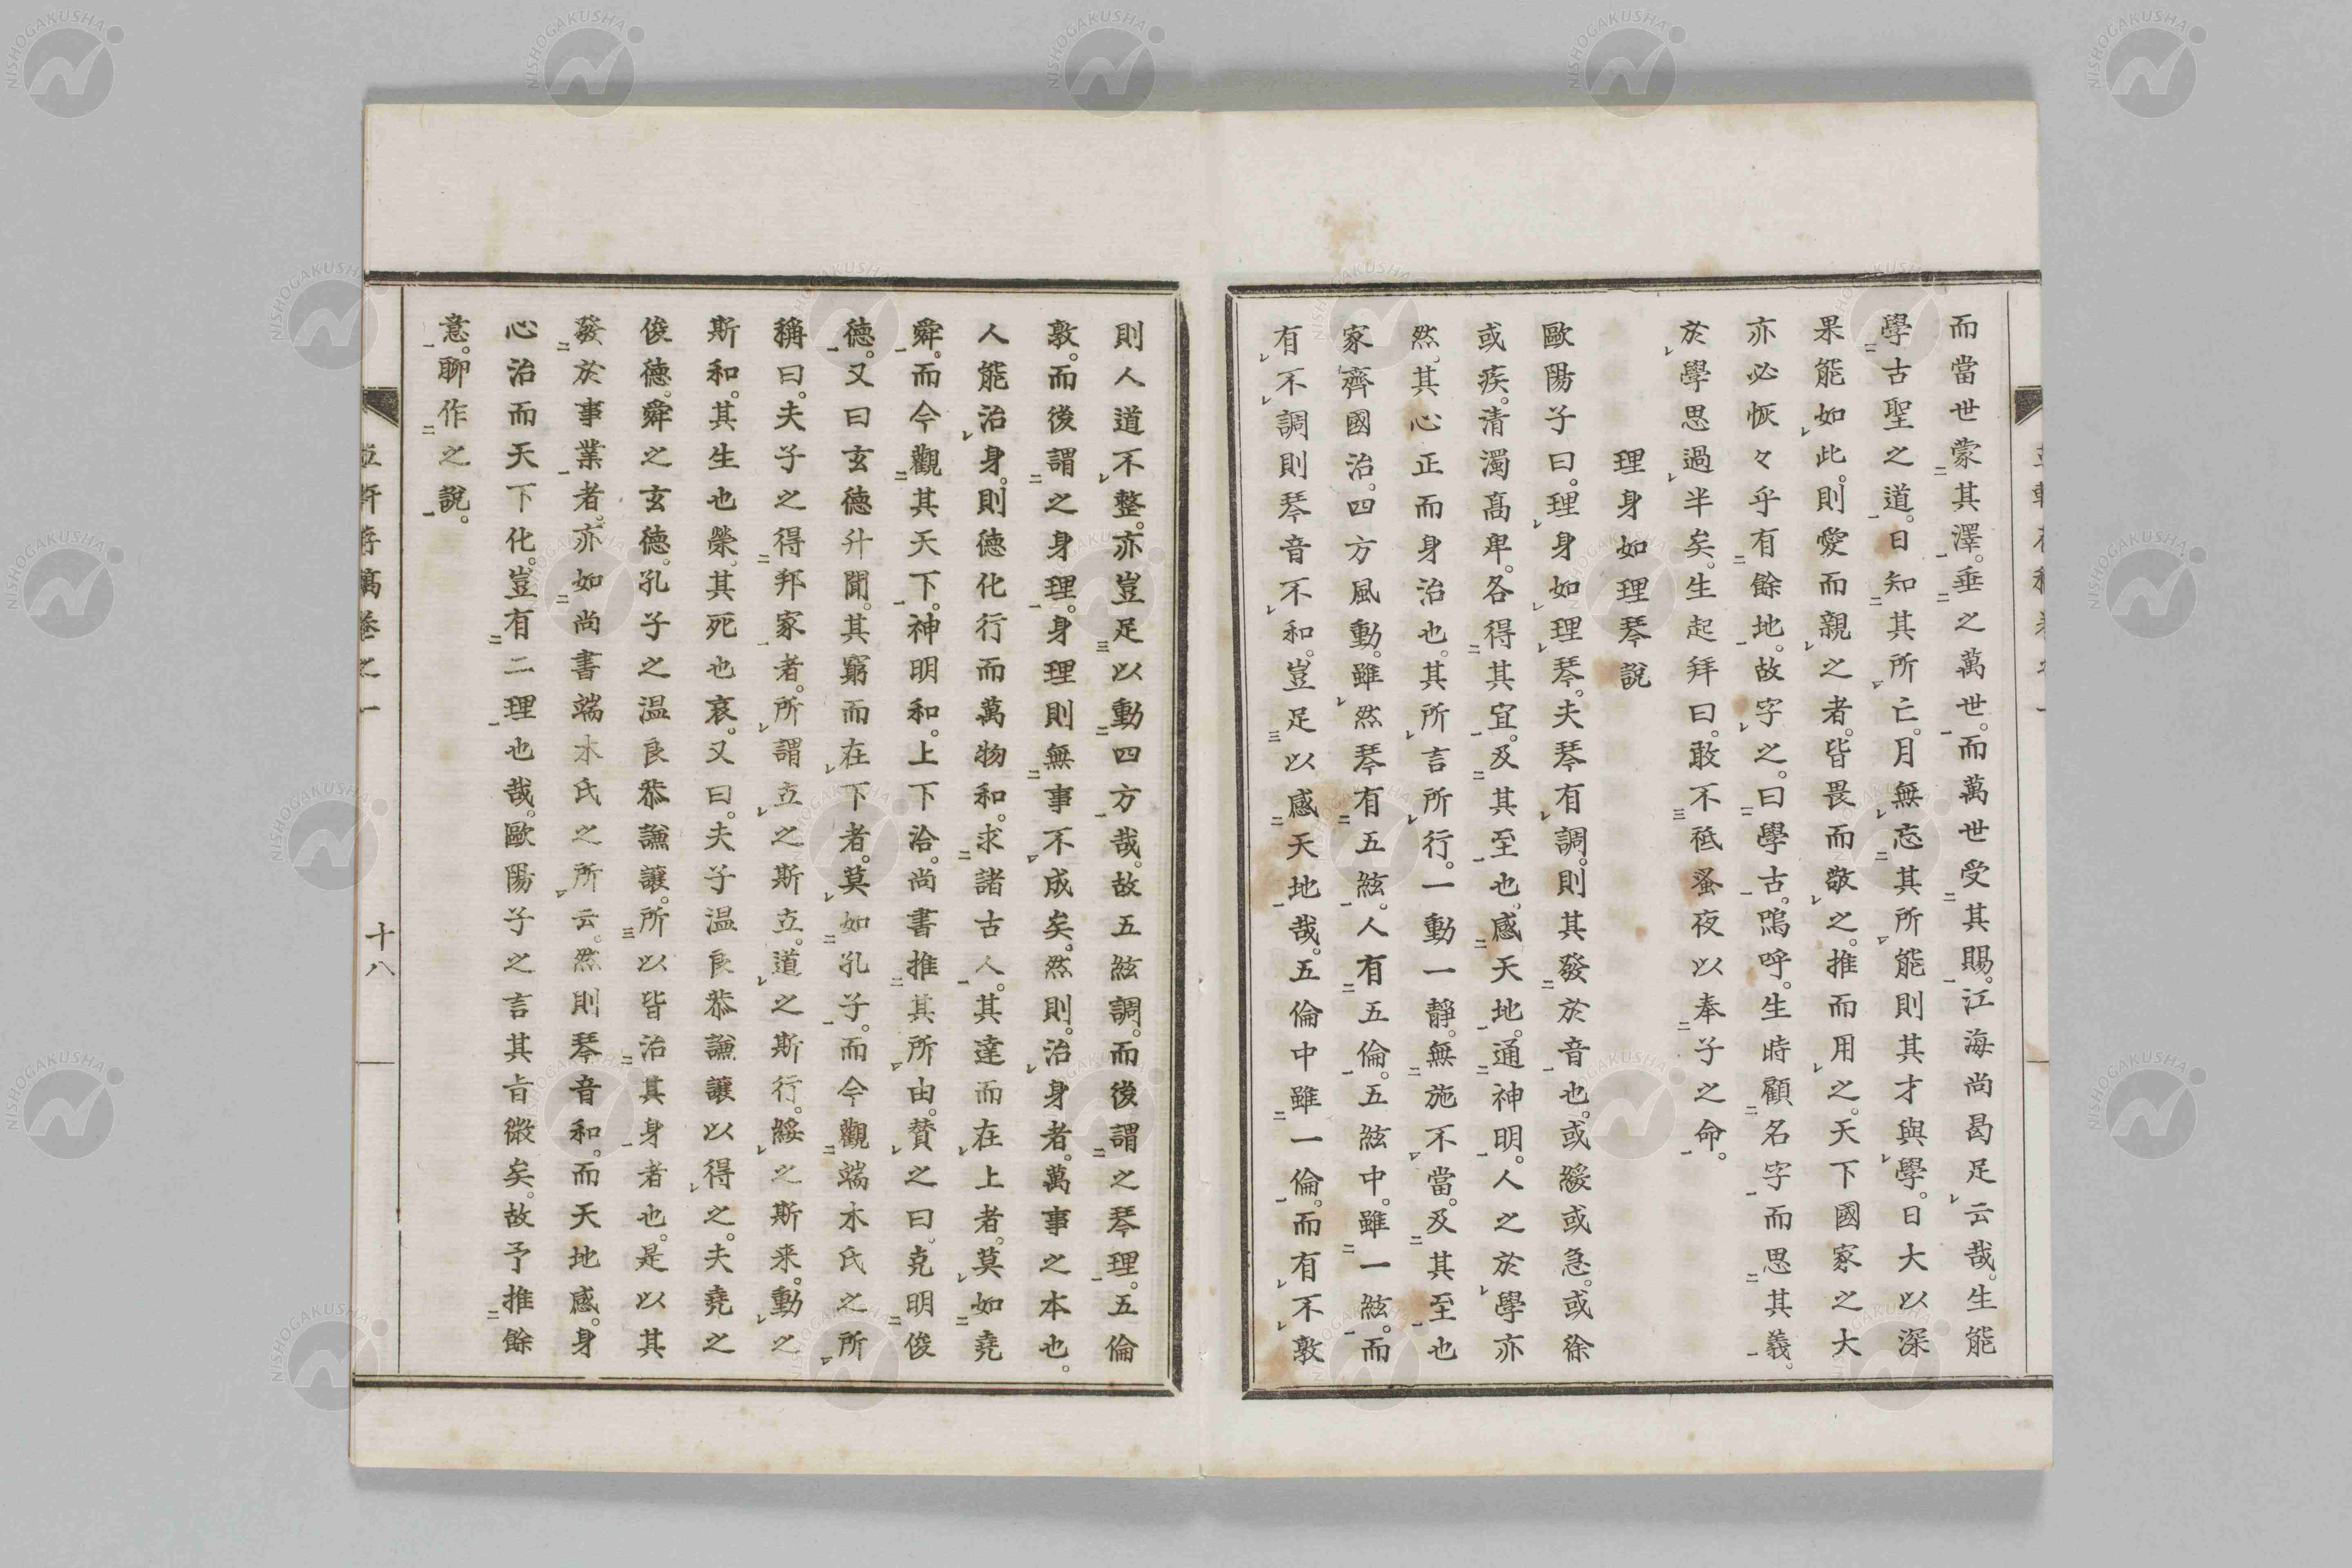 而當世蒙其澤。垂之萬世。而萬世受其賜。江海尚曷足云哉。生能
學古聖之道。日知其所亡。月無忘其所能則其才與學。日大以深
果能如此。則愛而親之者。皆畏而敬之。推而用之。天下國家之大
亦必恢々乎有餘地。故字之。曰學古。嗚呼。生時顧名字而思其義。
於學思過半矣。生起拜曰。敢不祗蚤夜以奉子之命。
理身如理琴說
歐陽子曰。理身如理琴。夫琴有調。則其發於音也。或緩或急。或徐
或疾。清濁髙卑。各得其宜。及其至也。感天地。通神明。人之於學亦
然。其心正而身治也。其所言所行。一動一靜。無施不當。及其至也
家齊國治。四方風動。雖然琴有五絃。人有五倫。五絃中。雖一絃。而
有不調則琴音不和。豈足以感天地哉。五倫中雖一倫。而有不敦
則人道不整。亦豈足以動四方哉。故五絃調。而後謂之琴理。五倫
敦。而後謂之身理。身理則無事不成矣。然則。治身者。萬事之本也。
人能治身。則德化行而萬物和。求諸古人。其達而在上者。莫如堯
舜。而今觀其天下。神明和。上下洽。尚書推其所由。賛之曰。克明俊
德。又曰玄德升聞。其窮而在下者。莫如孔子。而今觀端木氏之所
稱曰。夫子之得邦家者。所謂立之斯立。道之斯行。綏之斯来。動之
斯和。其生也榮。其死也哀。又曰。夫子温良恭謙讓以得之。夫堯之
俊德。舜之玄德。孔子之温良恭謙讓。所以皆治其身者也。是以其
發於事業者。亦如尚書端木氏之所云。然則琴音和。而天地感。身
心治而天下化。豈有二理也哉。歐陽子之言其旨微矣。故予推餘
意。聊作之說。
卷之一
十八
NISHOGAKUSHA